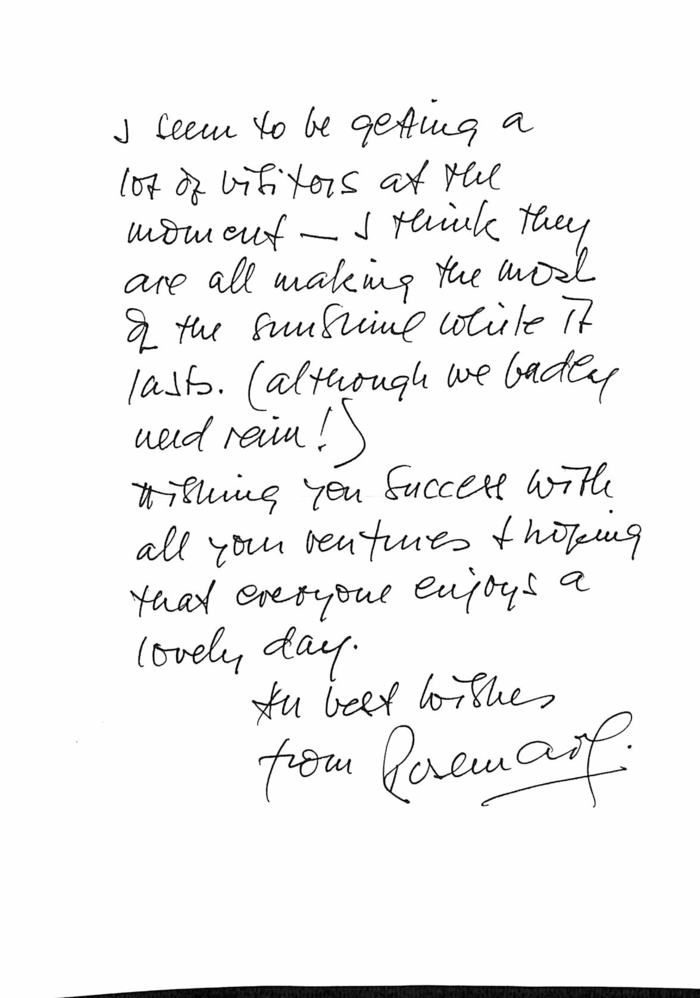 I seem to be getting a
lot of visitors at the
moment — I think they
are all making the most
of the sunshine while it
lasts. (although we badly
need rain!)
Wishing you success with
all your ventures & hoping
that everyone enjoys a
lovely day.
All best wishes
from Rosemary.